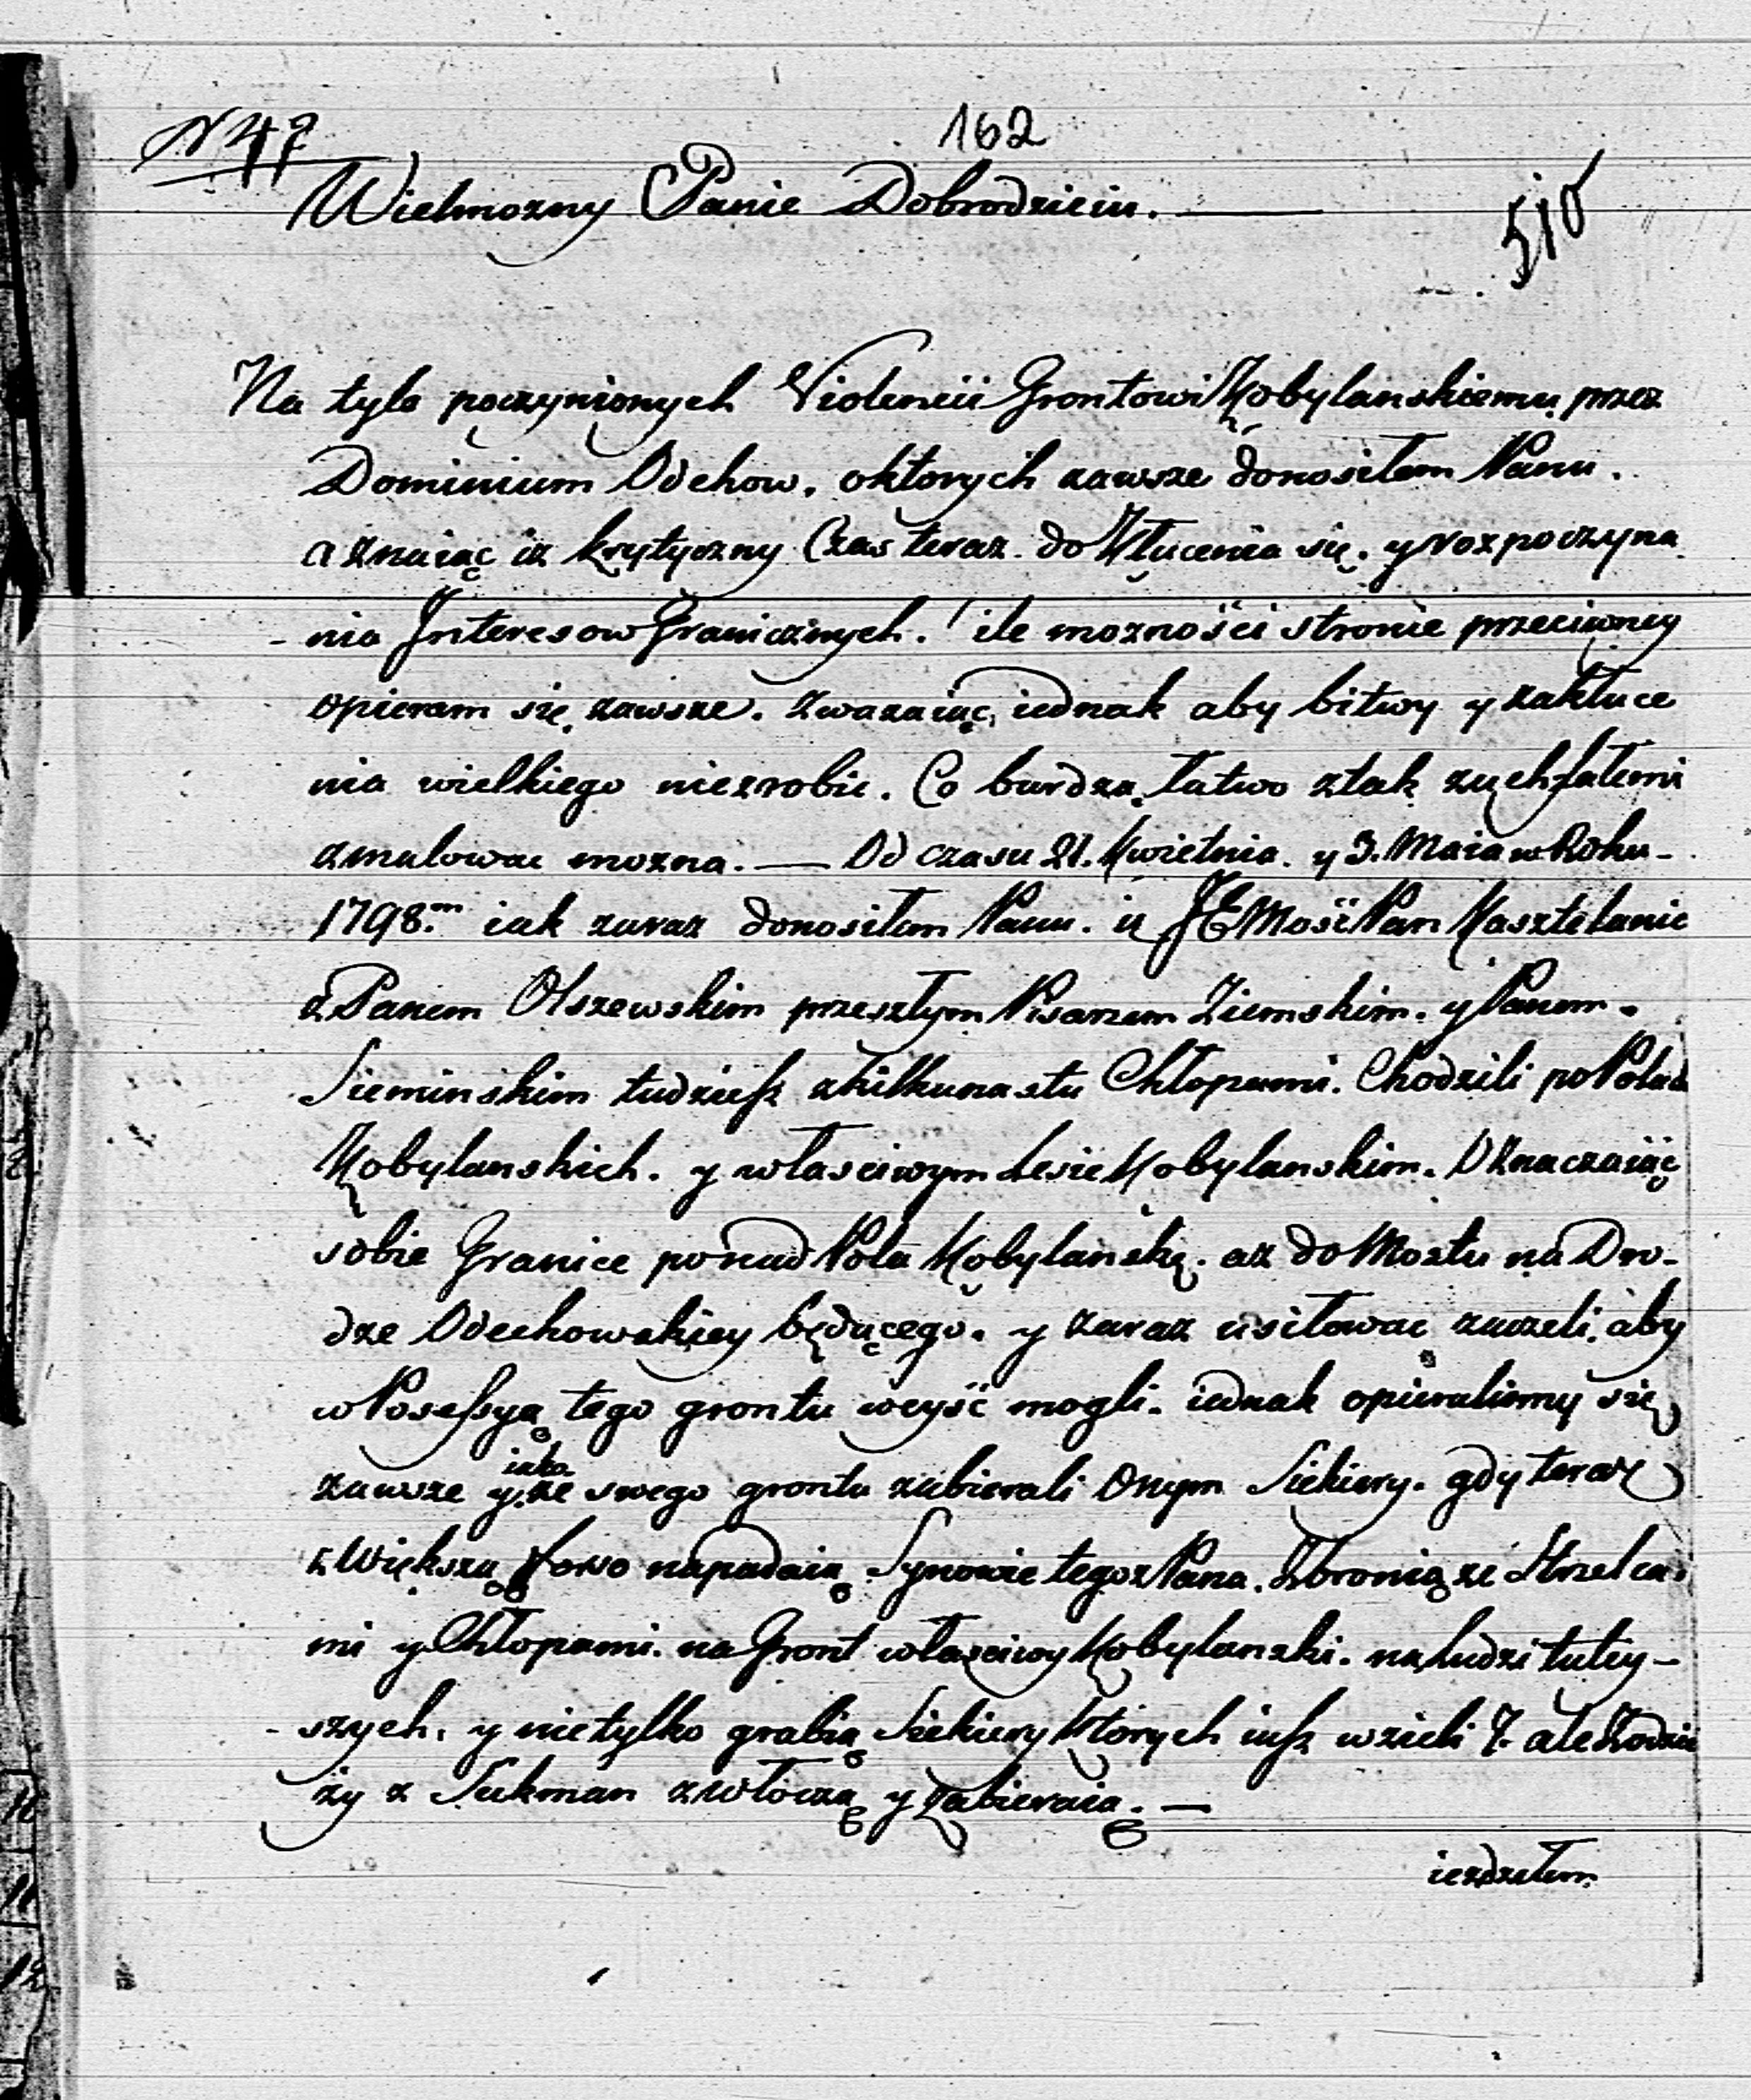 N 47
162
Wielmozny Panie Dobrodzieiu. —
510
Na tyle poczynionych Violencii Grontowi Kobylanskiemu przez
Dominium Odechow. oktorych zawsze donosiłem Panu.
a znaiąc iz krytyczny Czas teraz do Kłucenia się. y rozpoczyna
- nia Jnteresow Granicznych. ile mozności stronie przeciwney
opieram się zawsze. zwazaiąc iednak aby bitwy y zakłuce
nia wielkiego niezrobić. Co bardzo łatwo ztak zuchfałemi
zmalować mozna. — Od czasu 21. Kwietnia. y 3. Maia w Roku
1798.m iak zaraz donosiłem Panu. iz JEMość Pan Kasztelanic
z Panem Olszewskim przeszłym Pisarzem Ziemskim. y Panem.
Sieminskim tudzieß zkilkunastu Chłopami. Chodzili po Polach
Kobylanskich. y własciwym Lesie Kobylanskim. Oznaczaiąc
sobie Granice ponad Pola Kobylańskę. az do Mostu na Dro-
dze Odechowskiey będącego. y zaraz usiłować zaczeli, aby
w Poseßyą tego grontu weyść mogli. iednak opieralismy się
zawsze y iako ze swego grontu zabierali Onym Siekiery. gdy teraz
z Większą forso napadaią Synowie tegoz Pana. Zbronią ze Strzelca
mi y Chłopami. na Gront własciwy Kobylanski. na Ludzi tutey-
- szych. y nietylko grabią Siekiery Których iuß wzieli 7. ale Zodzie
ży z Sukman zwłoczą y Zabieraią. —
iezdzełem